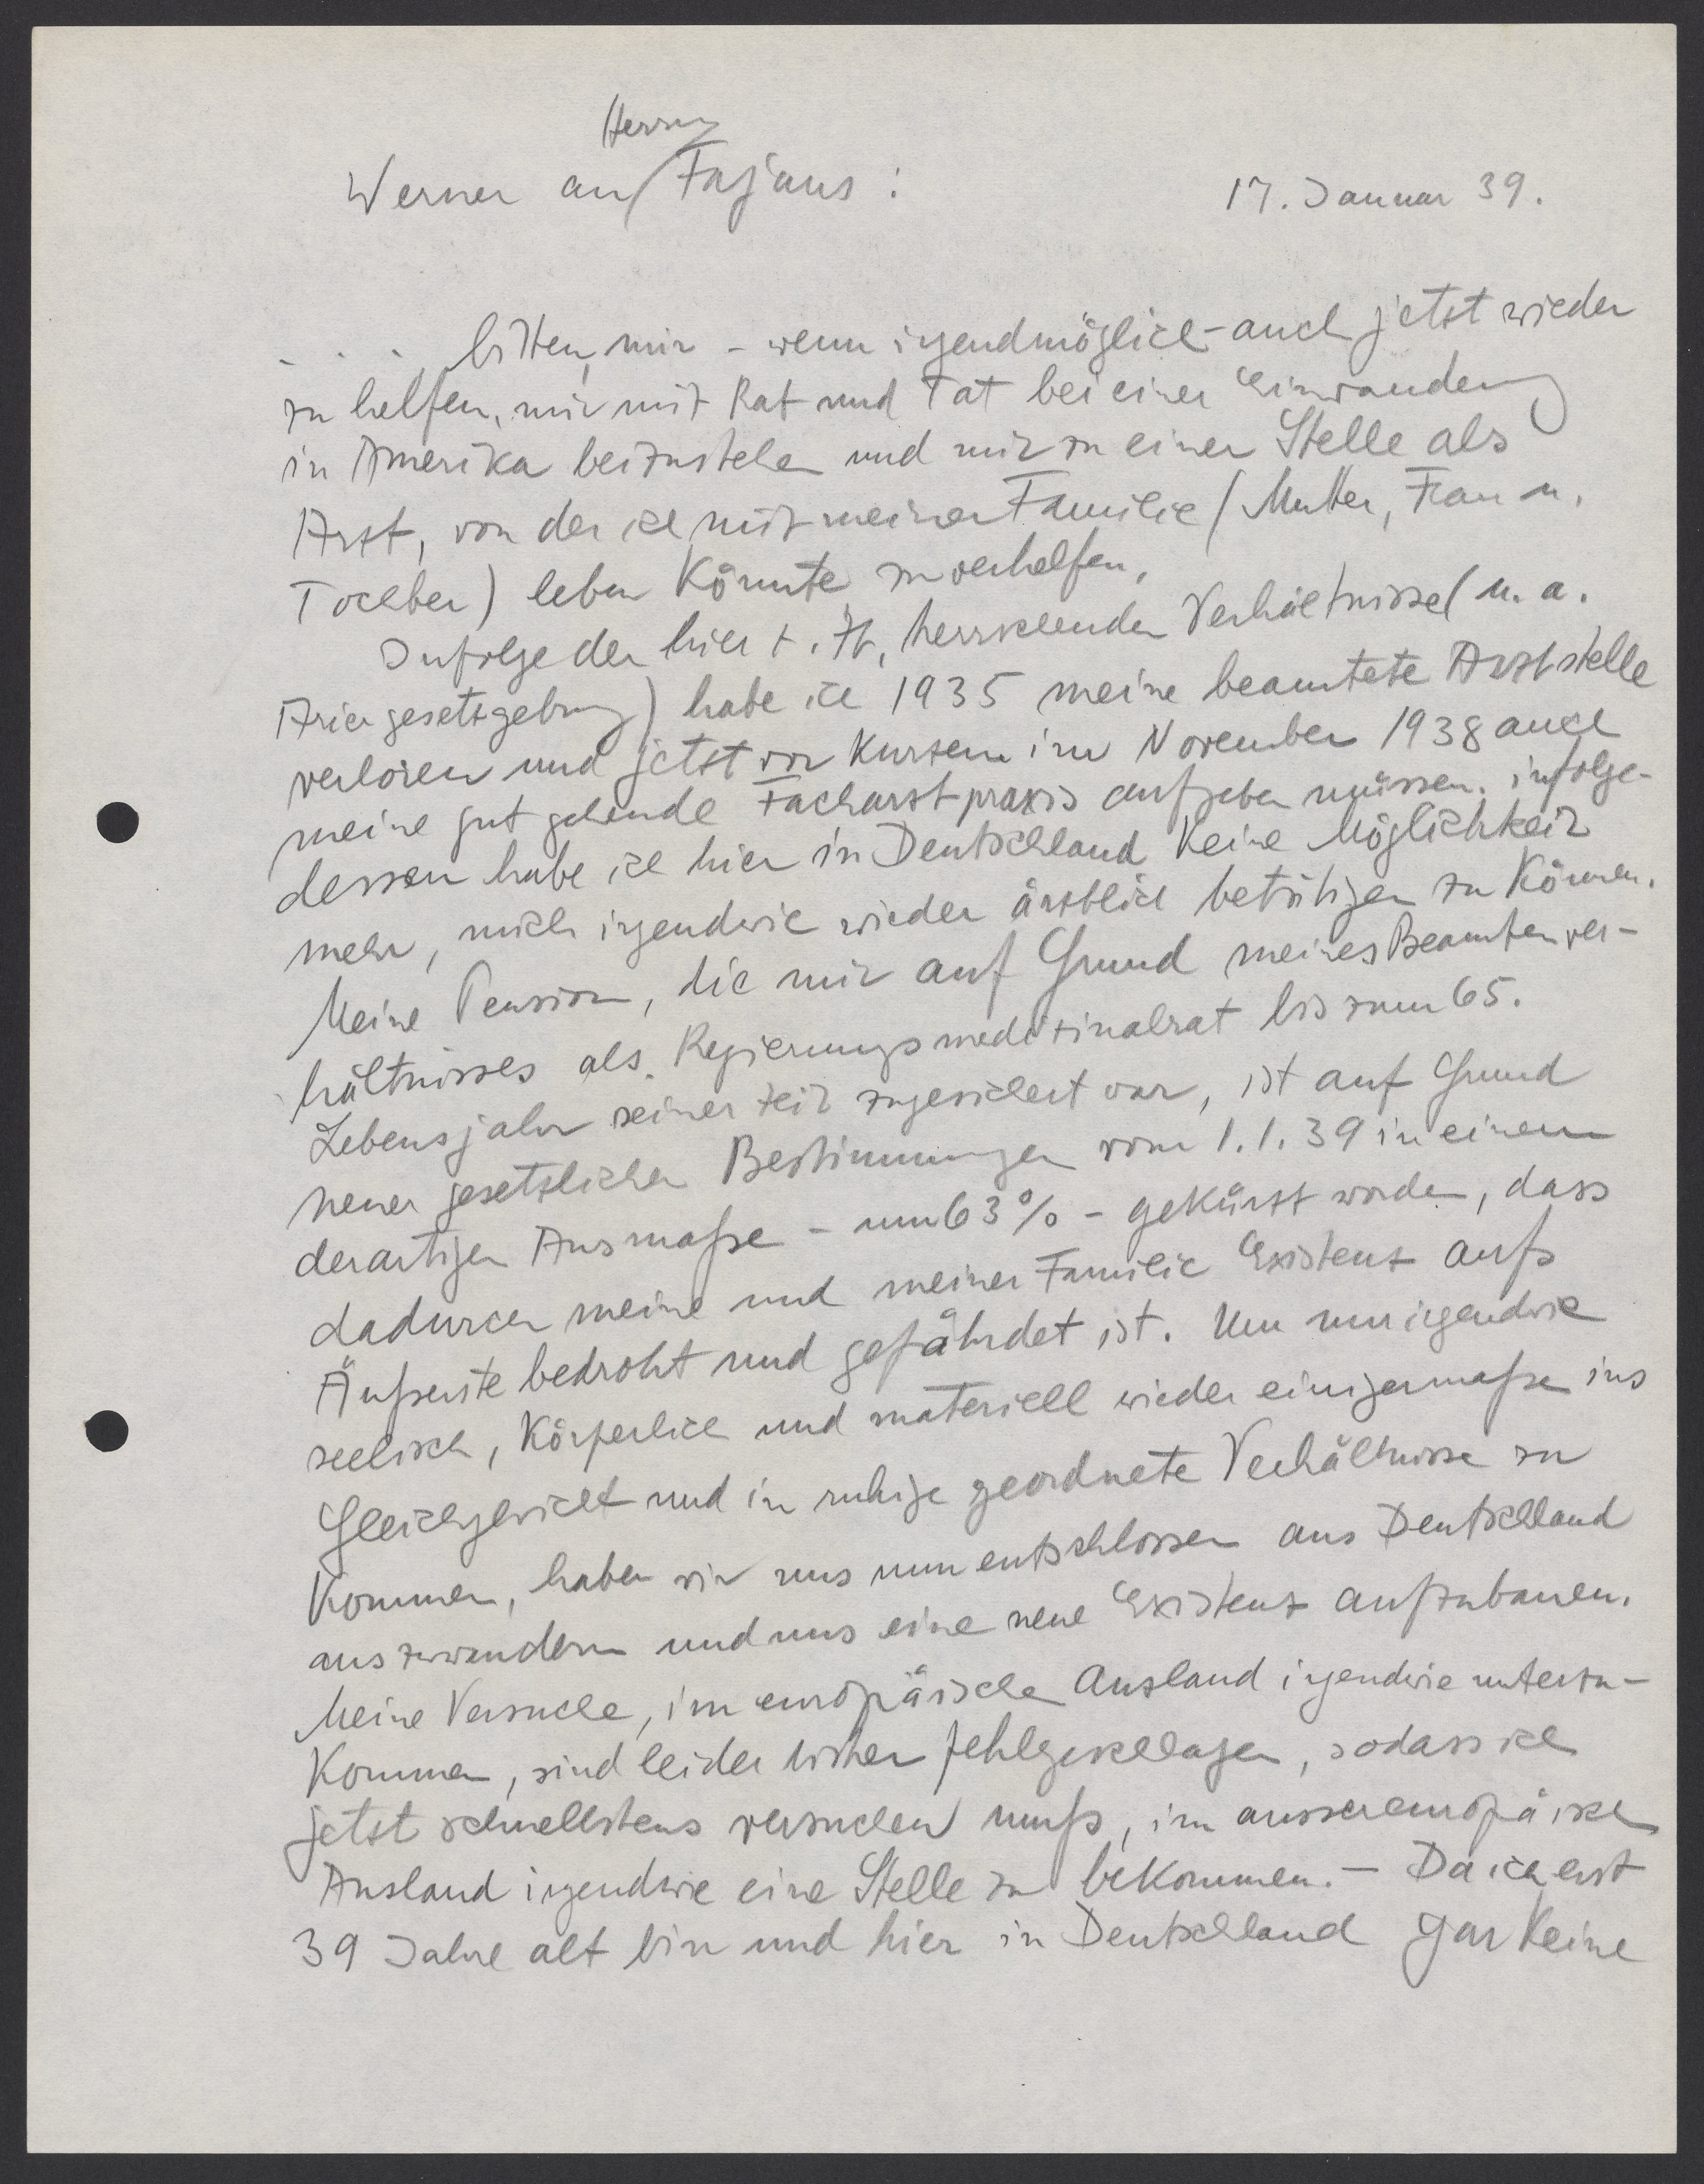 Herrn
Werner an Fajans : 17. Januar 39.
. . . bitten, mir - wenn irgendmöglich - auch jetzt wieder
zu helfen, mir mit Rat und Tat bei einer Einwanderung
in Amerika beizustehen und mir zu einer Stelle als
Arzt, von der ich mit meiner Familie (Mutter, Frau u.
Tochter) leben könnte, zu verhelfen.
Infolge der hier z. Zt. herrschenden Verhältnisse (u. a.
Ariergesetzgebung) habe ich 1935 meine beamtete Arztstelle
verloren und jetzt vor kurzem im November 1938 auch
meine gut gehende Facharztpraxis aufgeben müssen. infolge-
dessen habe ich hier in Deutschland keine Möglichkeit
mehr, mich irgendwie wieder ärztlich betätigen zu können.
Meine Pension, die mir auf Grund meines Beamtenver-
hältnisses als Regierungsmedizinalrat bis zum 65.
Lebensjahr seinerzeit zugesichert war, ist auf Grund
neuer gesetzlicher Bestimmungen vom 1.1.39 in einem
derartigen Ausmaße - um 63% - gekürzt worden, dass
dadurch meine und meiner Familie Existenz aufs
Äußerste bedroht und gefährdet ist. Um nun irgendwie
seelisch, körperlich und materiell wieder einigermaße ins
Gleichgewicht und in ruhige geordnete Verhältnisse zu
kommen, haben wir uns nun entschlossen aus Deutschland
auszuwandern und uns eine neue Existenz aufzubauen.
Meine Versuche, im europäischen Ausland irgendwie unterzu-
kommen, sind leider bisher fehlgeschlagen, sodass ich
jetzt schnellstens versuchen muß, im aussereuropäischen
Ausland irgendwie eine Stelle zu bekommen. - Da ich erst
39 Jahre alt bin und hier in Deutschland gar keine